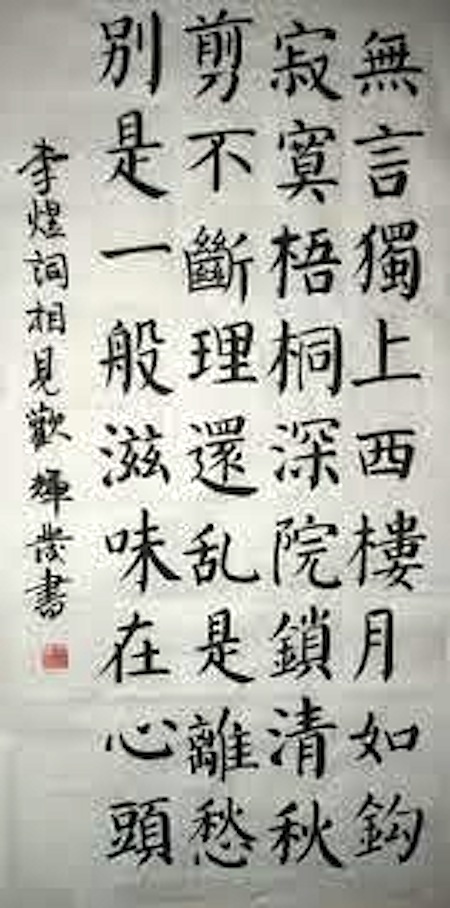 無言獨上西樓月如鈎
寂寞梧桐深院鎖清秋
剪不斷理還乱是離愁
別是一般滋味在心頭
李煜詞相見歡 輝書